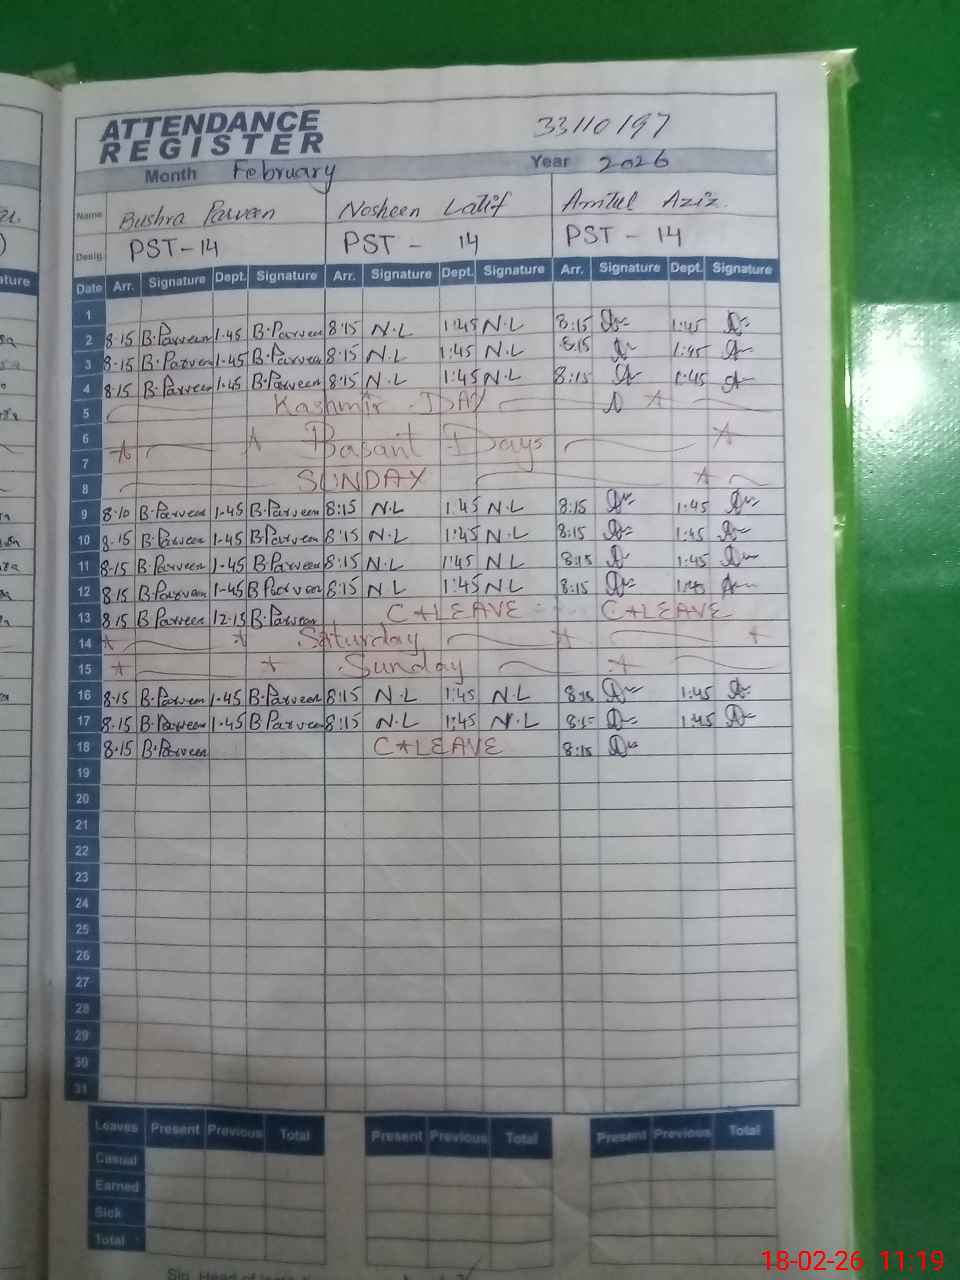 ATTENDANCE
REGISTER
33110197
Month February Year 2026
Name Bushra Parveen Nosheen Latif Amtul Aziz.
Desig. PST-14 PST - 14 PST - 14
Date Arr. Signature Dept. Signature Arr. Signature Dept. Signature Arr. Signature Dept. Signature
1
2 8-15 B.Parveen 1-45 B.Parveen 8:15 N.L 1:45 N.L 8:15 1:45
3 8-15 B.Parveen 1-45 B.Parveen 8:15 N.L 1:45 N.L 8:15 1:45
4 8-15 B.Parveen 1-45 B.Parveen 8:15 N.L 1:45 N.L 8:15 1:45
5 Kashmir DAY
6
Basant Days
7
8 SUNDAY
9 8-10 B.Parveen 1-45 B.Parveen 8:15 N.L 1:45 N.L 8:15 1:45
10 8-15 B.Parveen 1-45 B.Parveen 8:15 N.L 1:45 N.L 8:15 1:45
11 8-15 B.Parveen 1-45 B.Parveen 8:15 N.L 1:45 N L 8:15 1:45
12 8 15 B.Parveen 1-45 B Parveen 8:15 N L 1:45 N L 8:15 1:45
13 8 15 B Parveen 12-15 B.Parveen C*LEAVE C*LEAVE
14 Saturday
15 Sunday
16 8-15 B.Parveen 1-45 B.Parveen 8:15 N.L 1:45 N.L 8:15 1:45
17 8-15 B.Parveen 1-45 B Parveen 8:15 N.L 1:45 N.L 8:15 1:45
18 8-15 B.Parveen C*LEAVE 8:15
19
20
21
22
23
24
25
26
27
28
29
30
31
Leaves Present Previous Total Present Previous Total Present Previous Total
Casual
Earned
Sick
Total
Sig. Head of
18-02-26 11:19